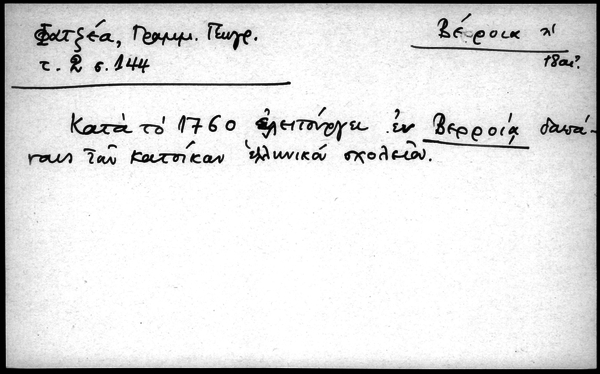 Φατζέα, Γραμμ. Γεωγρ.
τ. 2 σ. 144
Βέροια
18αι.
Κατὰ τὸ 1760 ἐλειτούργει ἐν Βερροίᾳ δαπά-
ναις τῶν κατοίκων ἑλληνικὸ σχολεῖον.